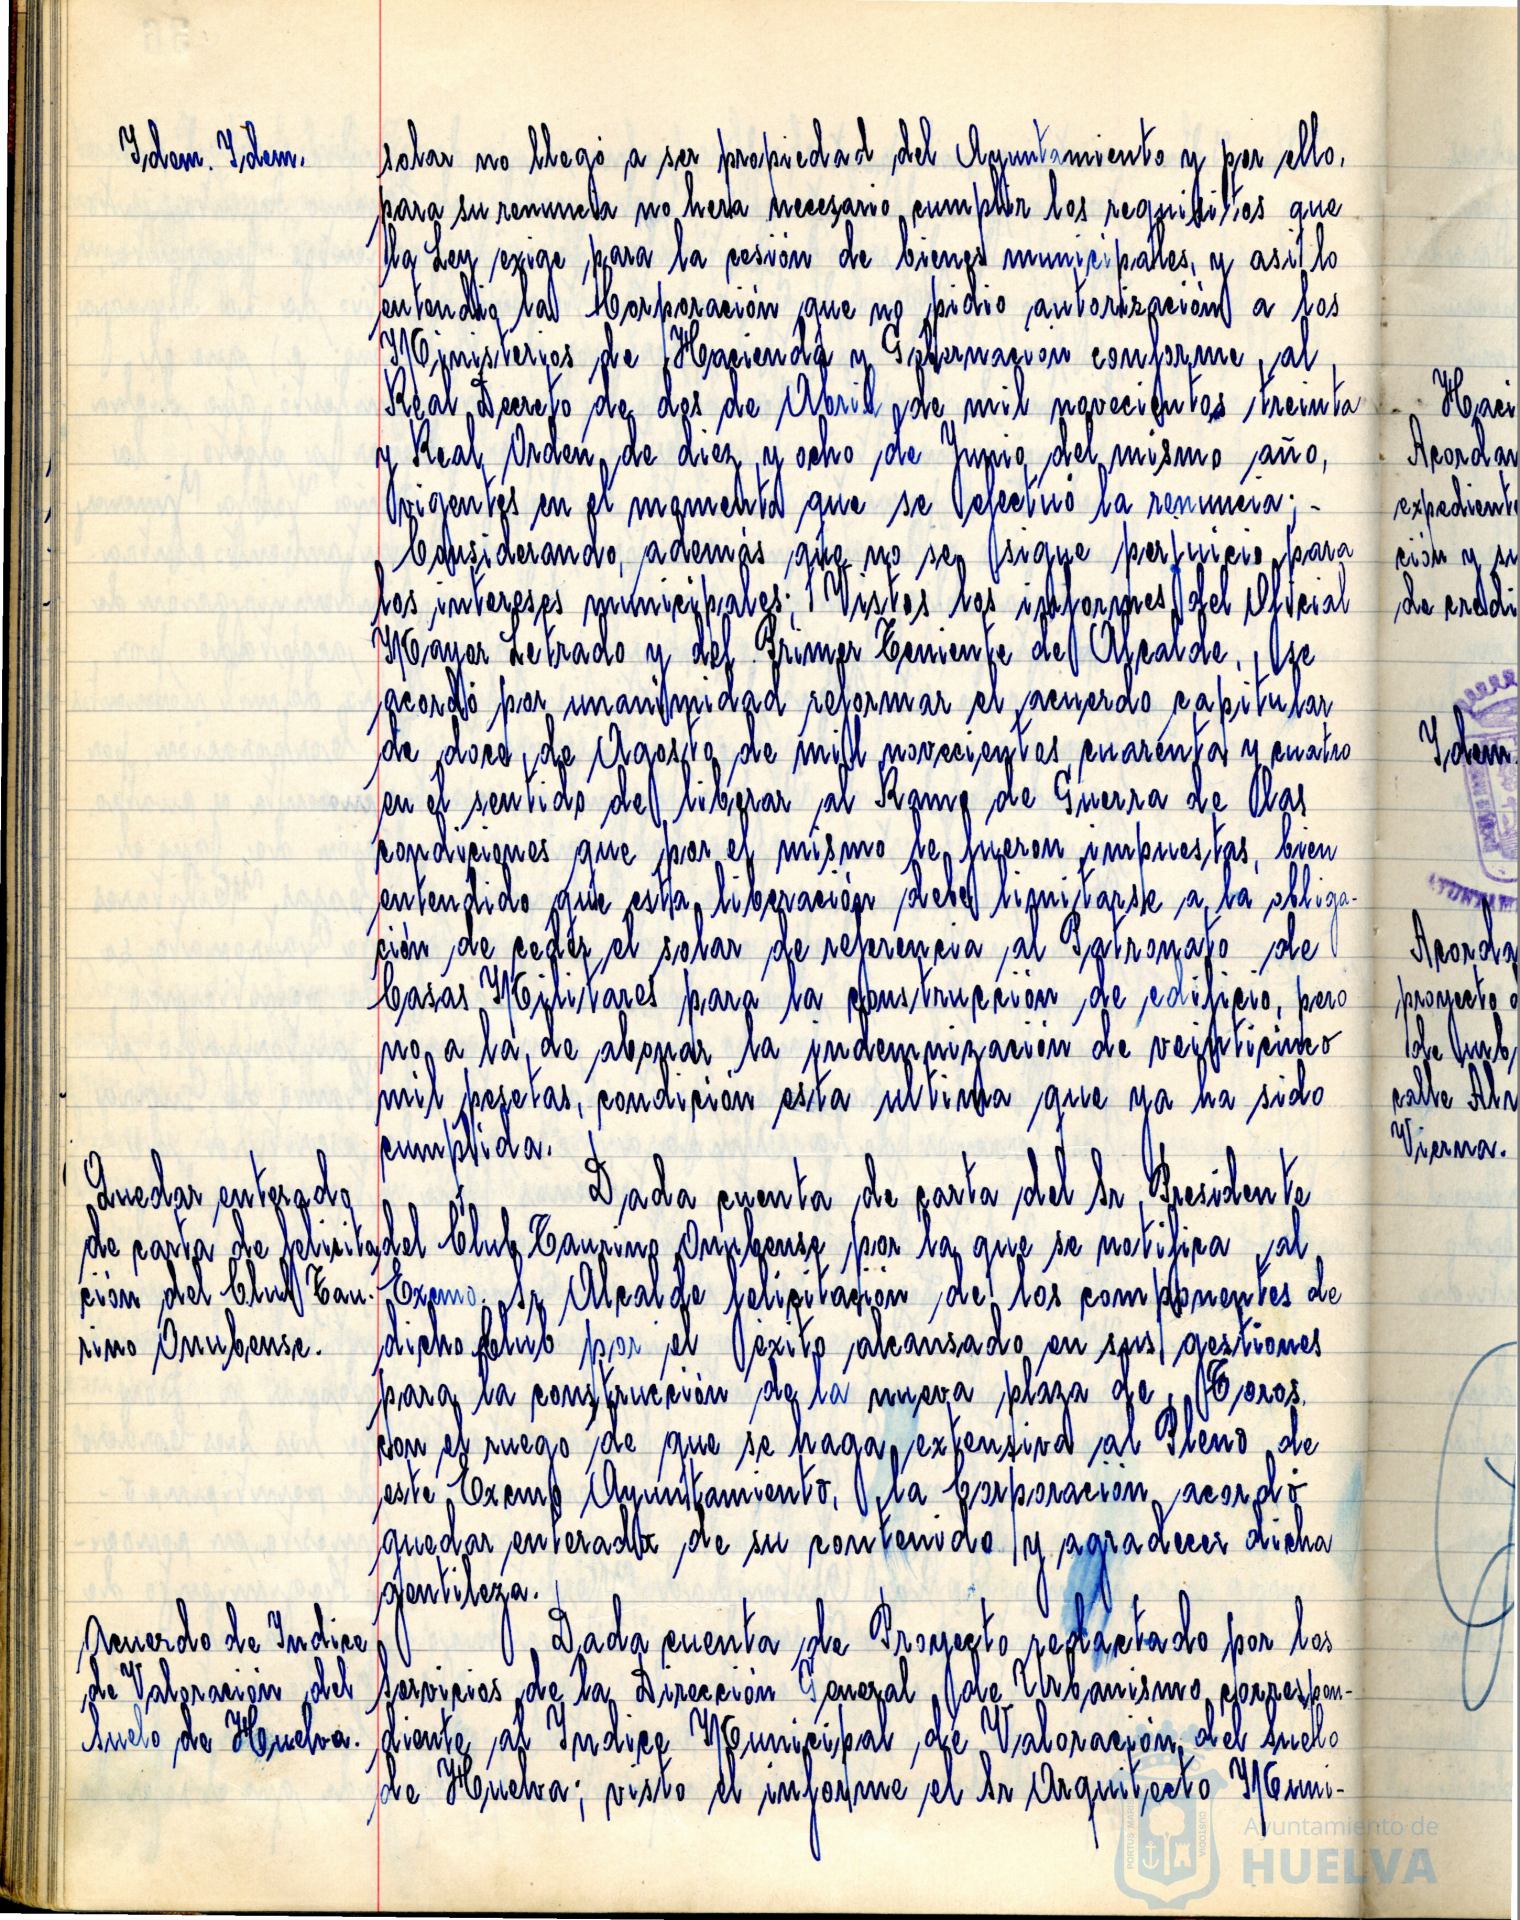 Idem. Idem.
solar no llegó a ser propiedad del Ayuntamiento y por ello,
para su renuncia no hera necesario cumplir los requisitos que
la Ley exige para la cesión de bienes municipales, y asi lo
entendio la Corporación que no pidio autorización a los
Ministerios de Hacienda y Gobernación conforme al
Real Decreto de dos de Abril de mil novecientos treinta
y Real Orden de diez y ocho de Junio del mismo año,
vigentes en el momento que se efectuó la renuncia; -
Considerando, además que no se sigue perjuicio para
los intereses municipales; Vistos los informes del Oficial
Mayor Letrado y del Primer Teniente de Alcalde, se
acordó por unanimidad reformar el acuerdo capitular
de doce de Agosto de mil novecientos cuarenta y cuatro
en el sentido de liberar al Ramo de Guerra de las
condiciones que por el mismo le fueron impuestas, bien
entendido que esta liberación debe limitarse a la obliga-
ción de ceder el solar de referencia al Patronato de
Casas Militares para la construcción de edificio, pero
no a la de abonar la indemnización de veinticinco
mil pesetas, condición esta ultima que ya ha sido
cumplida.
Quedar enterado
de carta de felicita
ción del Club Tau-
rino Onubense.
Dada cuenta de carta del Sr Presidente
del Club Taurino Onubense por la que se notifica al
Excmo. Sr Alcalde felicitación de los componentes de
dicho Club por el éxito alcansado en sus gestiones
para la construcción de la nueva plaza de Toros,
con el ruego de que se haga extensiva al Pleno de
este Excmo Ayuntamiento, la Corporación acordó
quedar enterada de su contenido y agradecer dicha
gentileza.
Acuerdo de Indice
de Valoración del
Suelo de Huelva.
Dada cuenta de Proyecto redactado por los
Servicios de la Dirección General de Urbanismo correspon-
diente al Indice Municipal de Valoración del Suelo
de Huelva; visto el informe el Sr Arquitecto Muni-
Haci
Acordar
expediente
ción y su
de credi
Idem.
Acorda
proyecto
calle
Vierna.
Ayuntamiento de
HUELVA